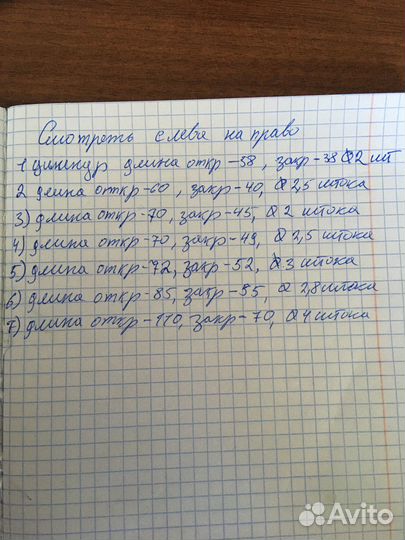 Смотреть слева на право
1 цилиндр длина откр-58, закр-38 Ø2 шт
2 длина откр-60, закр-40, Ø2,5 штока
3) длина откр-70, закр-45, Ø2 штока
4) длина откр-70, закр-49, Ø2,5 штока
5) длина откр-72, закр-52, Ø3 штока
6) длина откр-85, закр-55, Ø2,8 штока
7) длина откр-110, закр-70, Ø4 штока
Avito